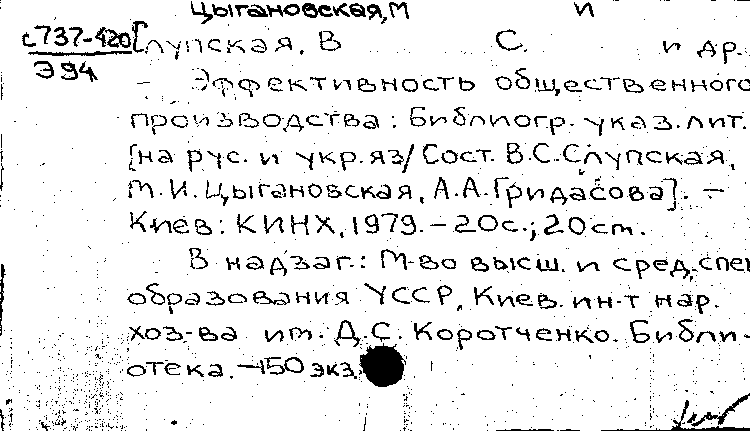 Цыгановская, М И
с737-420 [Слупская, В С. и др.
Э 94
- Эффективность общественного
производства: Библиогр. указ. лит.
[на рус. и укр. яз/ Сост. В.С. Слупская,
М.И. Цыгановская, А.А. Гридасова]. –
Киев: КИНХ, 1979. – 20 с.; 20 см.
В надзаг.: М-во высш. и сред. спец
образования УССР, Киев. ин-т нар.
хоз-ва им. Д.С. Коротченко. Библи-
отека. – 150 экз.